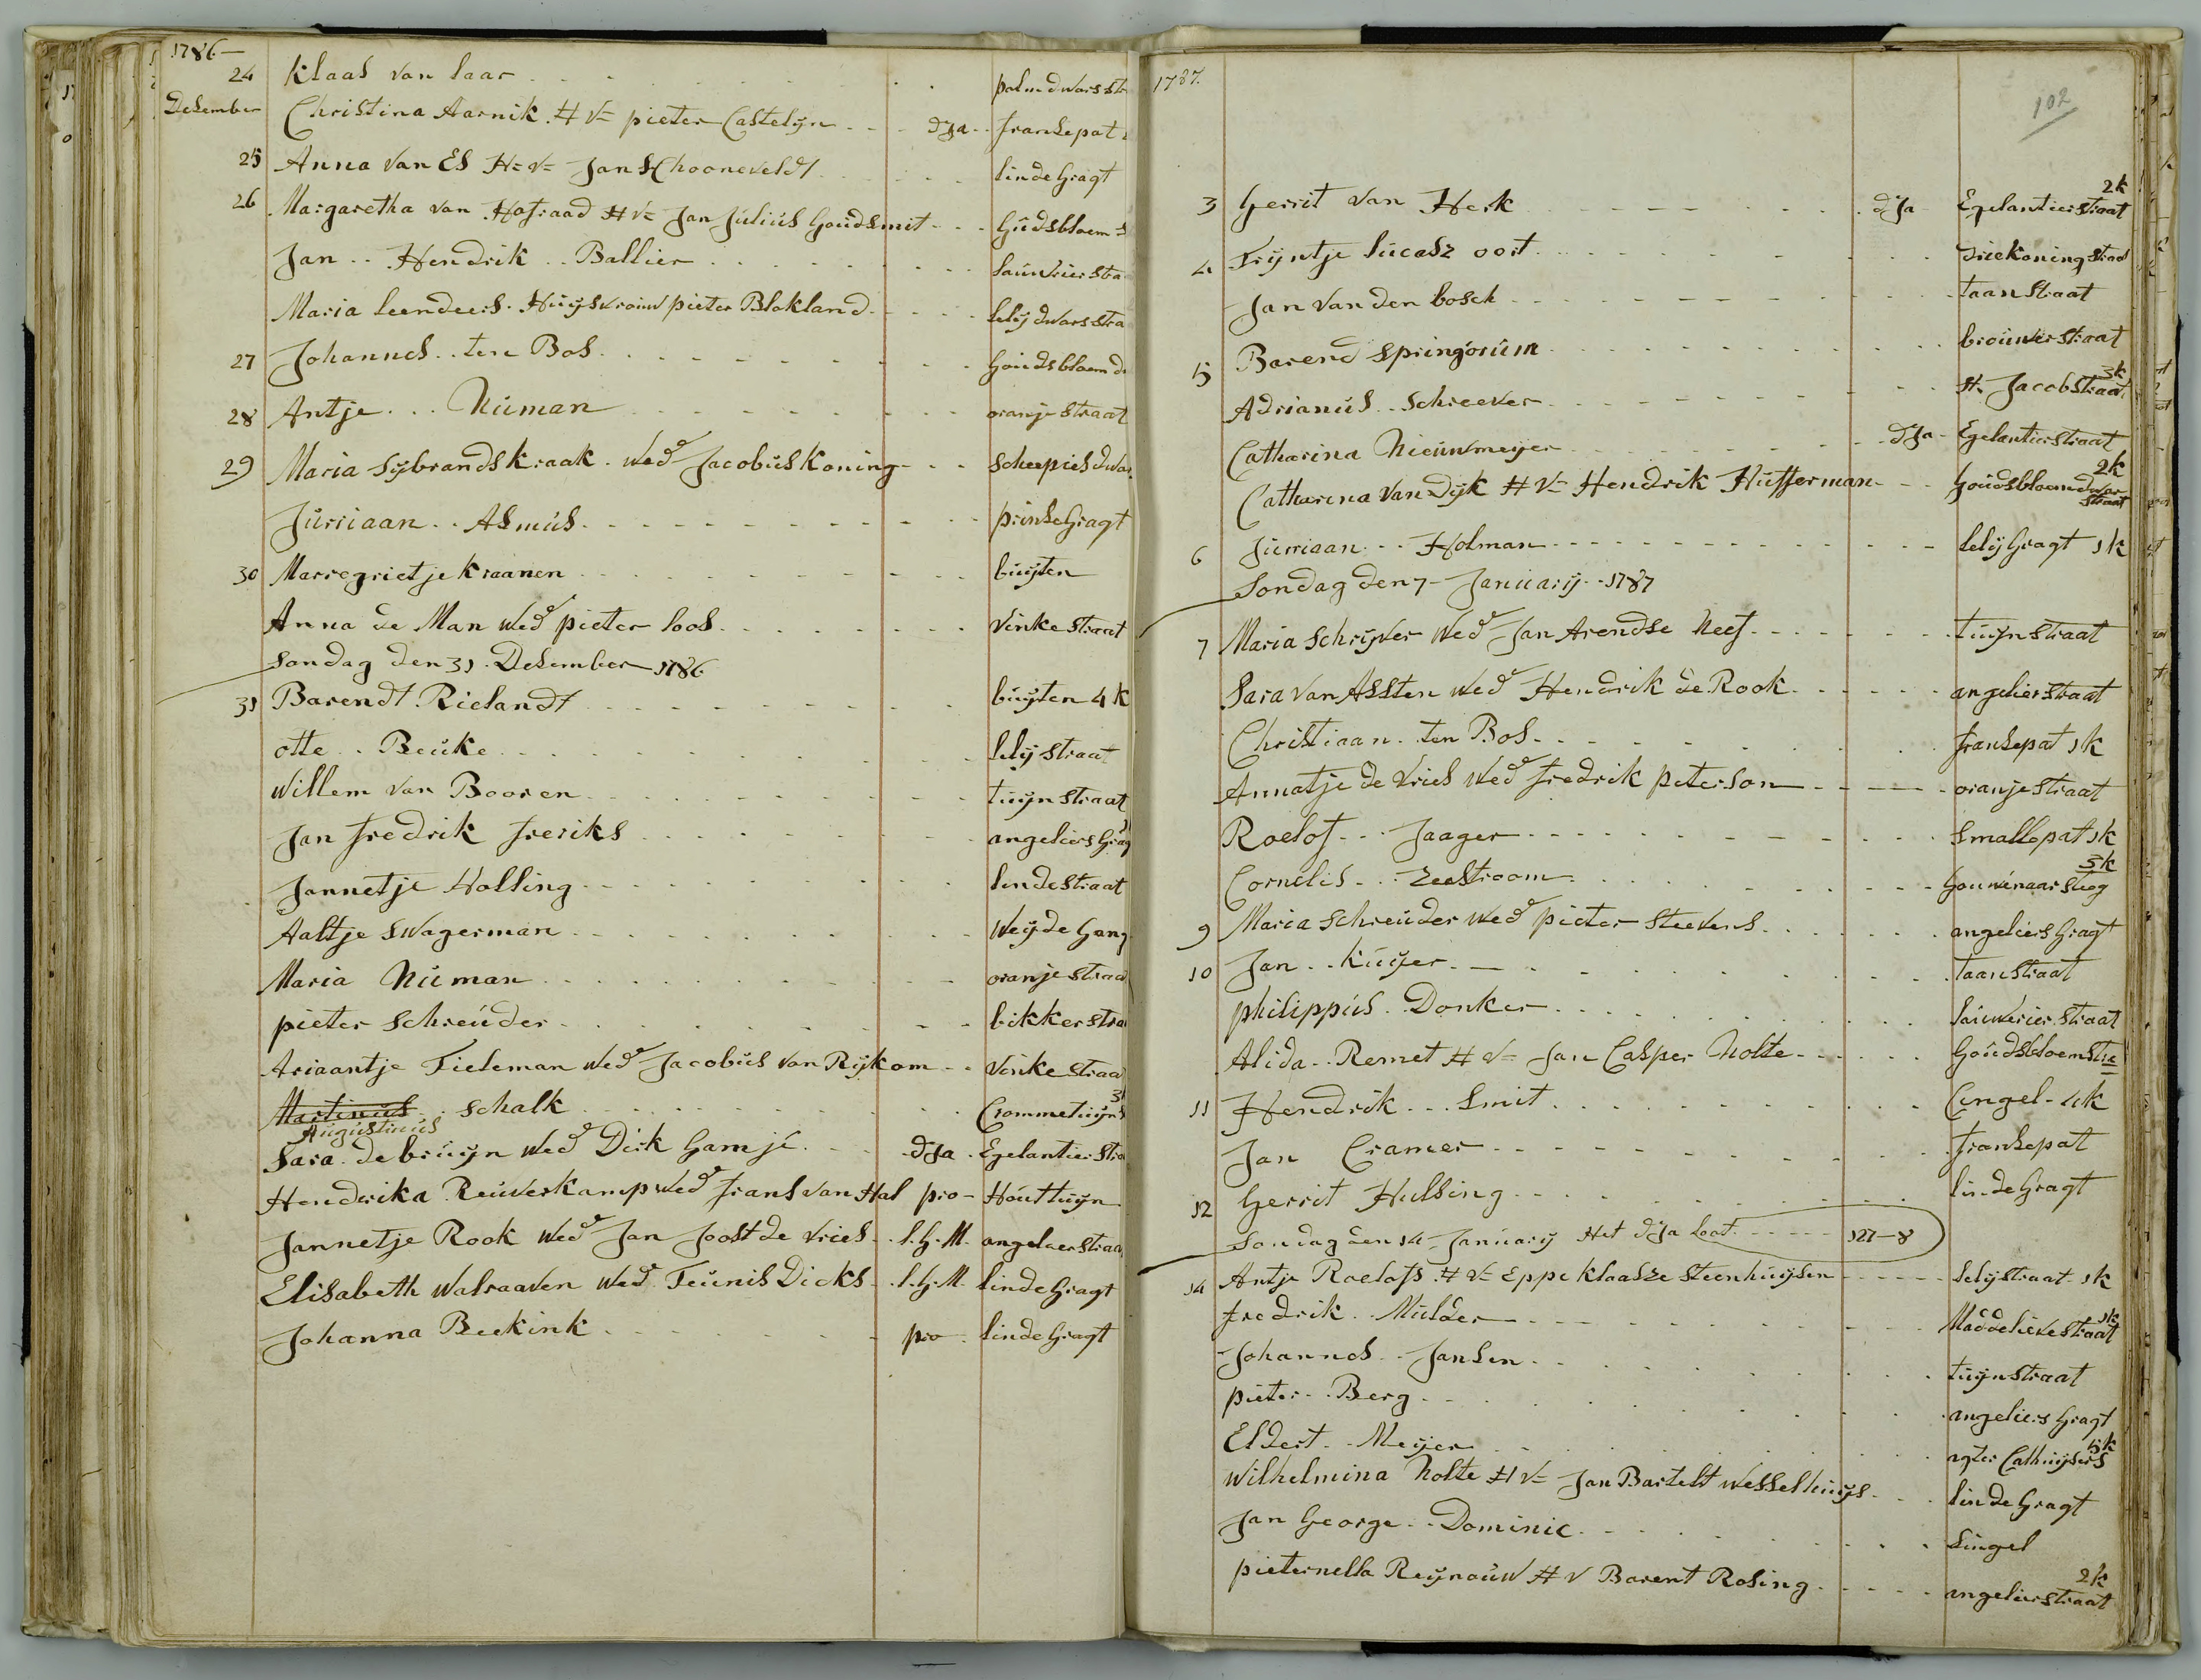 1786
24 Klaas van laar palmdwarsstr
Desember Christina Aarnik. H V= pieter Castelijn dJa fransepat
25 Anna van Es H= V= Jan Schooneveldt lindeGragt
26 Margaretha van Hofraad H V= Jan Julius Goudsmit Gudsbloem s
Jan Hendrik Ballier Lauwriersta
Maria leenders Huijsvrouw pieter Blokland lelijdwarsstra
27 Johannes ten Bos Goudsbloemd
28 Antje Numan oranjestraat
29 Maria Sijbrands Kraak wed Jacobus Koning Scheepiesdwa
Jurriaan Asmus prinseGragt
30 Marregrietje Kraanen buijten
Anna de Man wed pieter loos Vinkestraat
Sondag den 31 Desember 1786
31 Barendt Rielandt buijten 4 k
otte Beuke lelijstraat
willem van Booren tuijnstraat
Jan fredrik freriks angeliersGrag
Jannetje Holling lindestraat
Aaltje Swagerman WeijdeGang
Maria Numan oranjestraa
pieter Schreuder bikkerstra
Ariaantje Tieleman wed Jacobus van Rijkom Vinkestraa
Martinus Schalk Crommetuijns 3
Augustinus
Sara de bruijn wed Dirk Gamje dJa Egelantierstra
Hendrika Reuverkamp wed frans van Hal pro Houttuijn
Jannetje Rook wed Jan Joost de Vries l.G.M. angelierstraa
Elisabeth Walraaven wed Teunis Dicks l.G.M. lindeGragt
Johanna Beekink pro lindeGragt
1787.
102
3 Gerrit van Herk dJa Egelantierstraat 2k
4 Trijntje lucasz oort driekoningstraat
Jan van den bosch taanstraat
5 Barend Springorum brouwerstraat
Adrianus Schreever St. Jacobstraat 3k
Catharina Nieuwmeijer dJa Egelantierstraat
Catharina van Dijk H V= Hendrik Hufferman Goudsbloemdwarstraat 2k
6 Jurriaan Holman lelijGragt 1k
Sondag den 7 Januarij 1787
7 Maria Schrijver wed Jan Arendse Neef tuijnstraat
Sara van Assten wed Hendrik de Rook angelierstraat
Christiaan ten Bos fransepat 1k
Annatje de Vries wed fredrik peterson oranjestraat
Roelof Jaager Smallepat 1k
Cornelis Zeestroom Gouwenaarsteeg 3k
9 Maria Schreuder wed pieter Steevens angeliersGragt
10 Jan Kuijer taanstraat
philippus Donker lauwerierstraat
Alida Remet H V= Jan Casper Nolte Goudsbloemstra
11 Hendrik Smit Cingel 4k
Jan Cramer fransepat
12 Gerrit Hulsing lindeGragt
Sondag den 14 Januarij Het dJa loat 127-8
14 Antje Roelofs H V= Eppe Klaasze Steenhuijsen lelijstraat 1k
fredrik Mulder Maddelievestraat 1k
Johannes Jansen tuijnstraat
pieter Berg angeliersGragt
Eldert Meijer agter Cathuijsers 5k
Wilhelmina Nolte H V= Jan Bartelt Wesselhuijs lindeGragt
Jan George Dominic Singel
pieternella Reijnouw H V Barent Rosing angelierstraat 2k